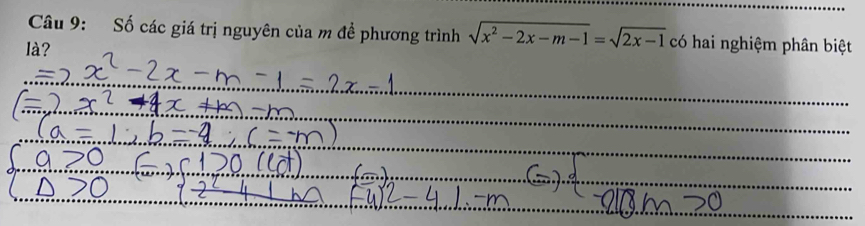 Câu 9: Số các giá trị nguyên của m để phương trình √(x² - 2x - m - 1) = √(2x - 1) có hai nghiệm phân biệt
là?
=> x² - 2x - m - 1 = 2x - 1
(=) x² - 4x - m
(a = 1, b = -4; c = -m)
{ a > 0 (=) { 1 > 0 (lđt) (=) (=) {
{ Δ > 0 (-4)² - 4.1.-m m > 0